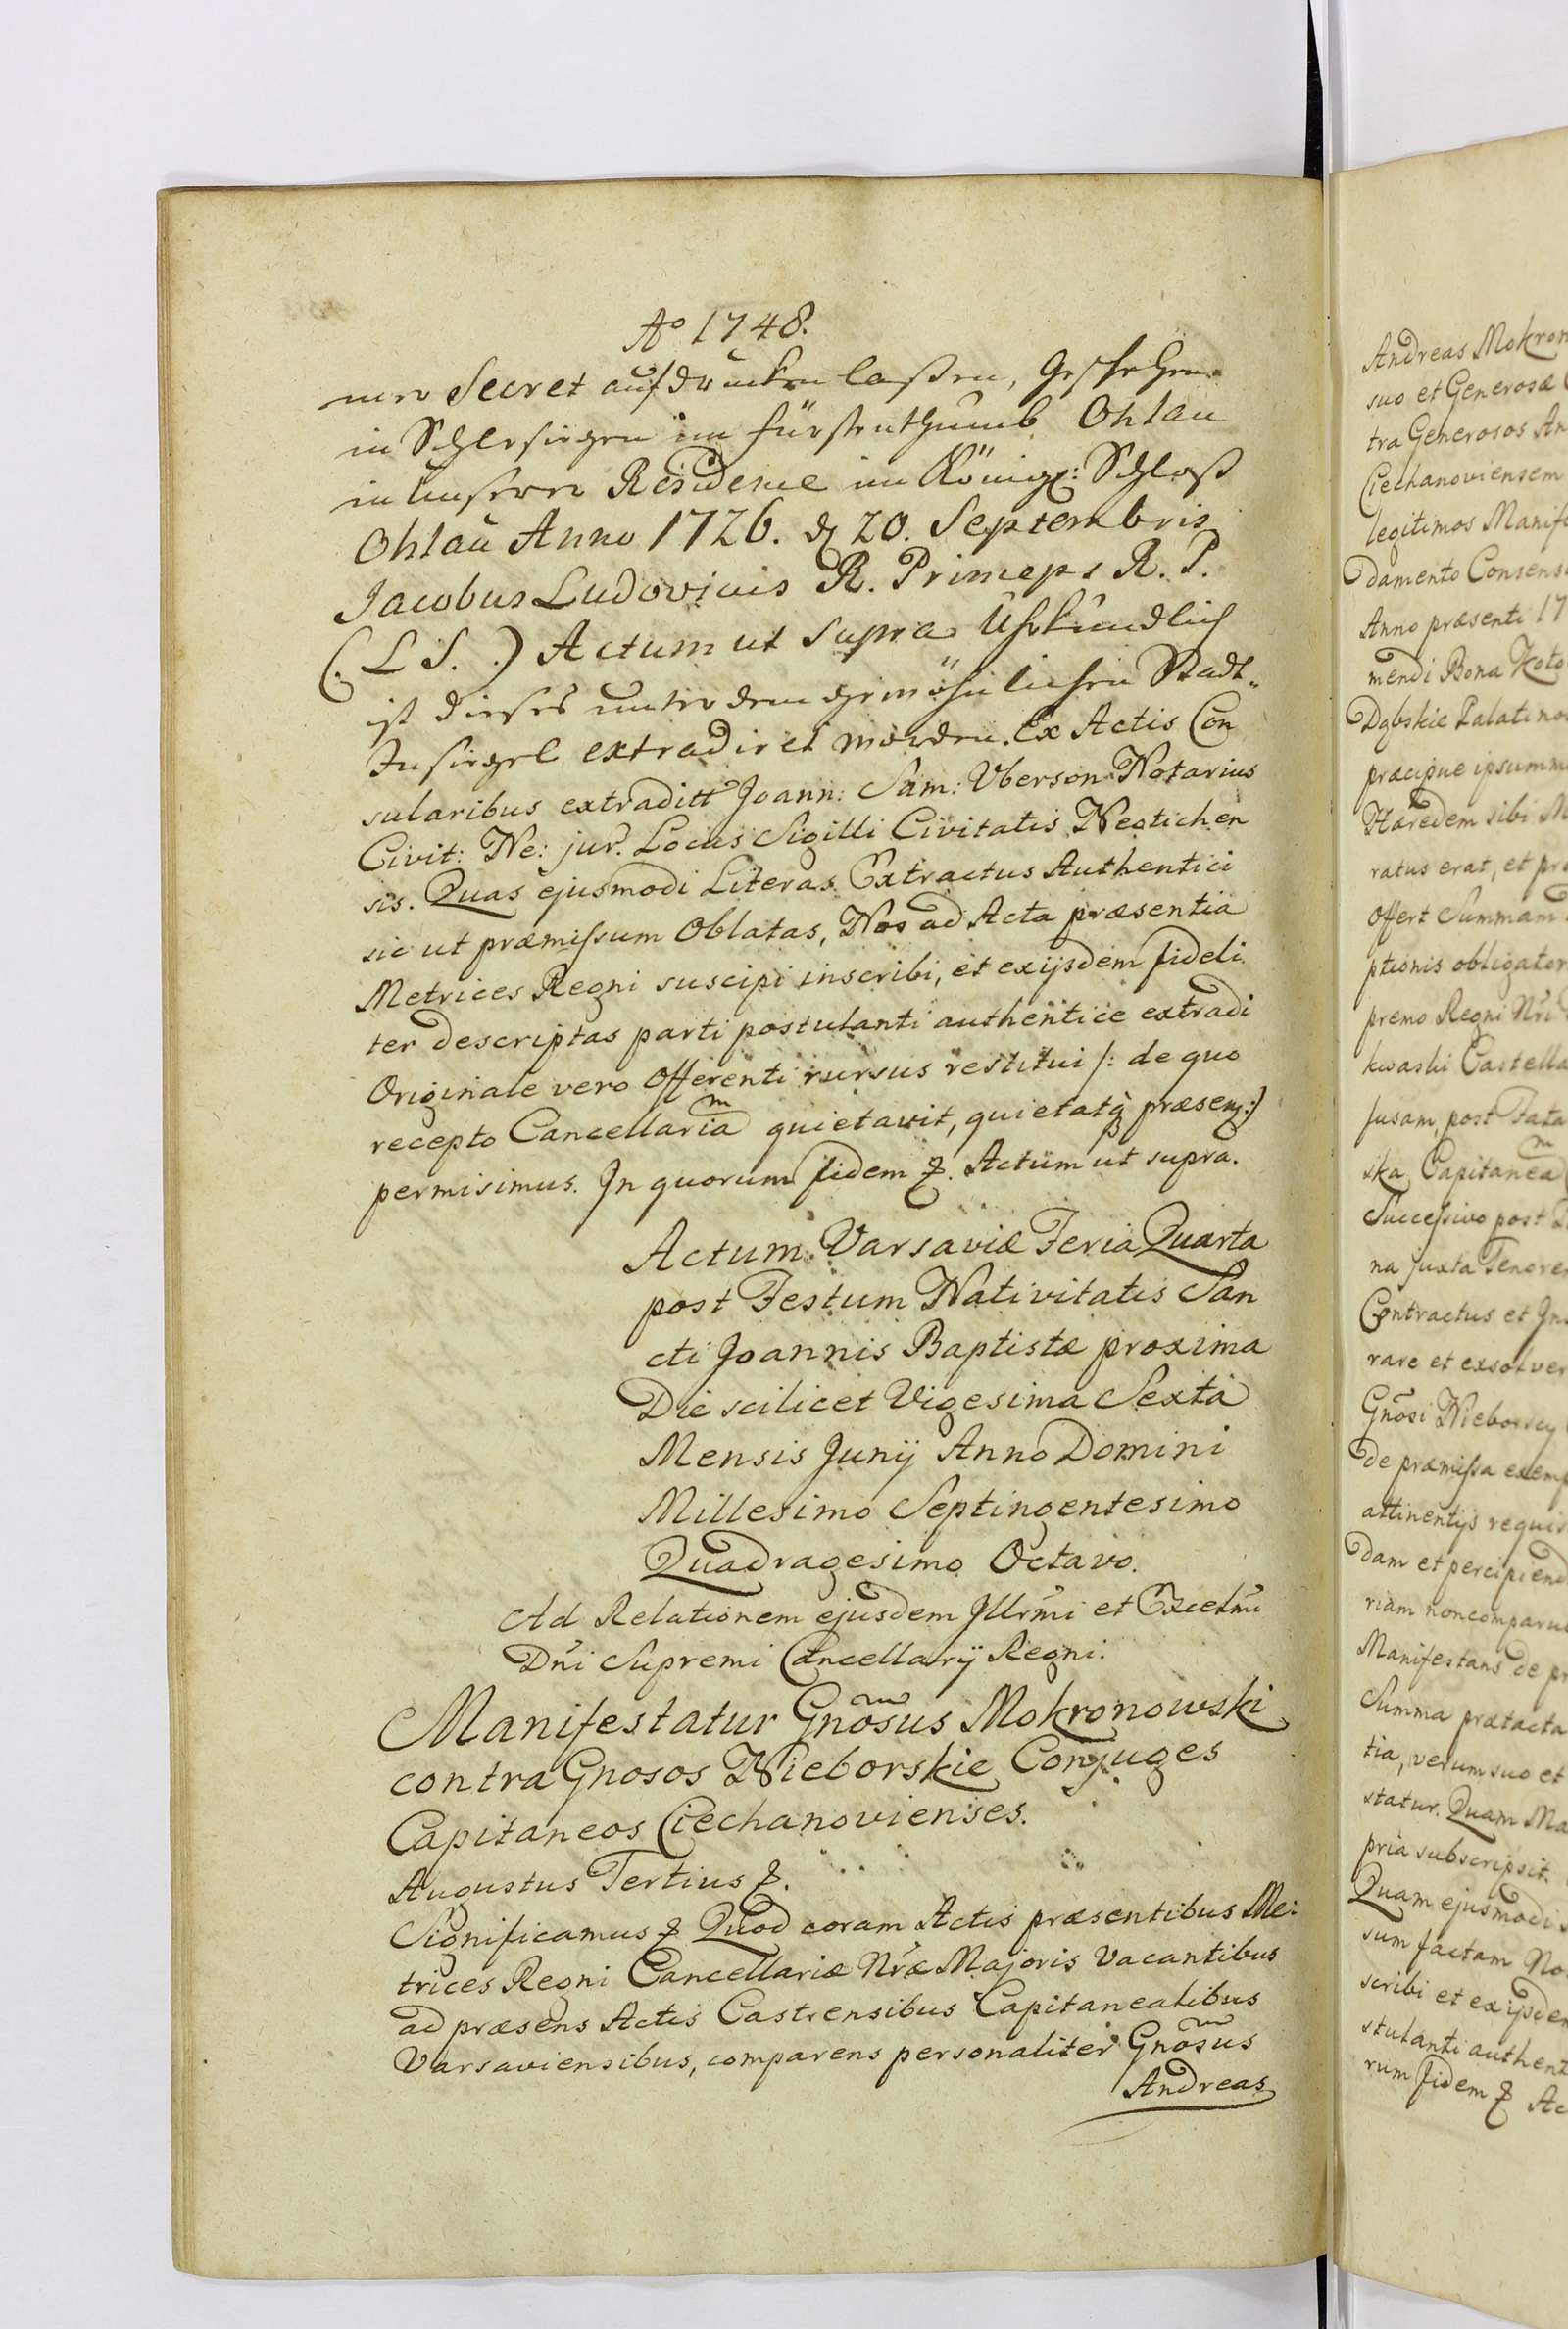 Aº 1748.
mer Secret aufdrucken laßen, Geschehen
in Schlesiegen im Fürstenthumb Ohlau
in Unserer Residence im Königl: Schloß
Ohlau Anno 1726. d 20. Septembris
Jacobus Ludovicus R. Princeps R. P.
(. L S. .) Actum ut supra Uhrkundlich
ist dieses unter dem gewöhnlichen Stadt-
Insiegel extradiret worden. Ex Actis Con
sularibus extraditt Joann: Sam: Vberson Notarius
Civit: Ne: jur. Locus Sigilli Civitatis Neotichen
sis. Quas ejusmodi Literas Extractus Authentici
sic ut præmissum Oblatas, Nos ad Acta præsentia
Metrices Regni suscipi inscribi, et exijsdem fideli
ter descriptas parti postulanti authentice extradi
Originale vero Offerenti rursus restitui /: de quo
recepto Cancellariam quietavit, quietatq præsen:/
permisimus. In quorum fidem &. Actum ut supra.
Actum Varsaviæ Feria Quarta
post Festum Nativitatis San
cti Joannis Baptistæ proxima
Die scilicet Vigesima Sexta
Mensis Junij Anno Domini
Millesimo Septingentesimo
Quadragesimo Octavo.
Ad Relationem ejusdem Jllrm̃i et Excelm̃i
Dñi Supremi Cancellarij Regni.
Manifestatur Gnõsus Mokronowski
contra Gnosos Nieborskie Conjuges
Capitaneos Ciechanovienses.
Augustus Tertius &.
Significamus & Quod coram Actis præsentibus Me:
trices Regni Cancellariæ Nr̃æ Majoris Vacantibus
ad præsens Actis Castrensibus Capitanealibus
Varsaviensibus, comparens personaliter Gnõsus
Andreas
Andreas Mokron
suo et Generosæ
tra Generosos An
Ciechanoviensem
legitimos Manife
damento Consens
Anno præsenti 17
mendi Bona Koto
Dąbskie Palatino
præcipue ipsumm
Hæredem sibi M
ratus erat, et pr
offert Summam
ptionis obligator
premo Regni Nr̃i
kwaski Castella
fusam, post Fata
ska Capitaneam
Successivo post
na juxta Tenore
Contractus et In
rare et exsolver
Gnõsi Nieborscy
de præmissa exemp
attinentijs requis
dam et percipiend
riam noncomparue
Manifestans de pr
Summa prætacta
tia, verum suo et
statur. Quam Ma
pria subscripsit.
Quam ejusmodi
sum factam No
scribi et exijsdem
stulanti authent
rum fidem & Ac